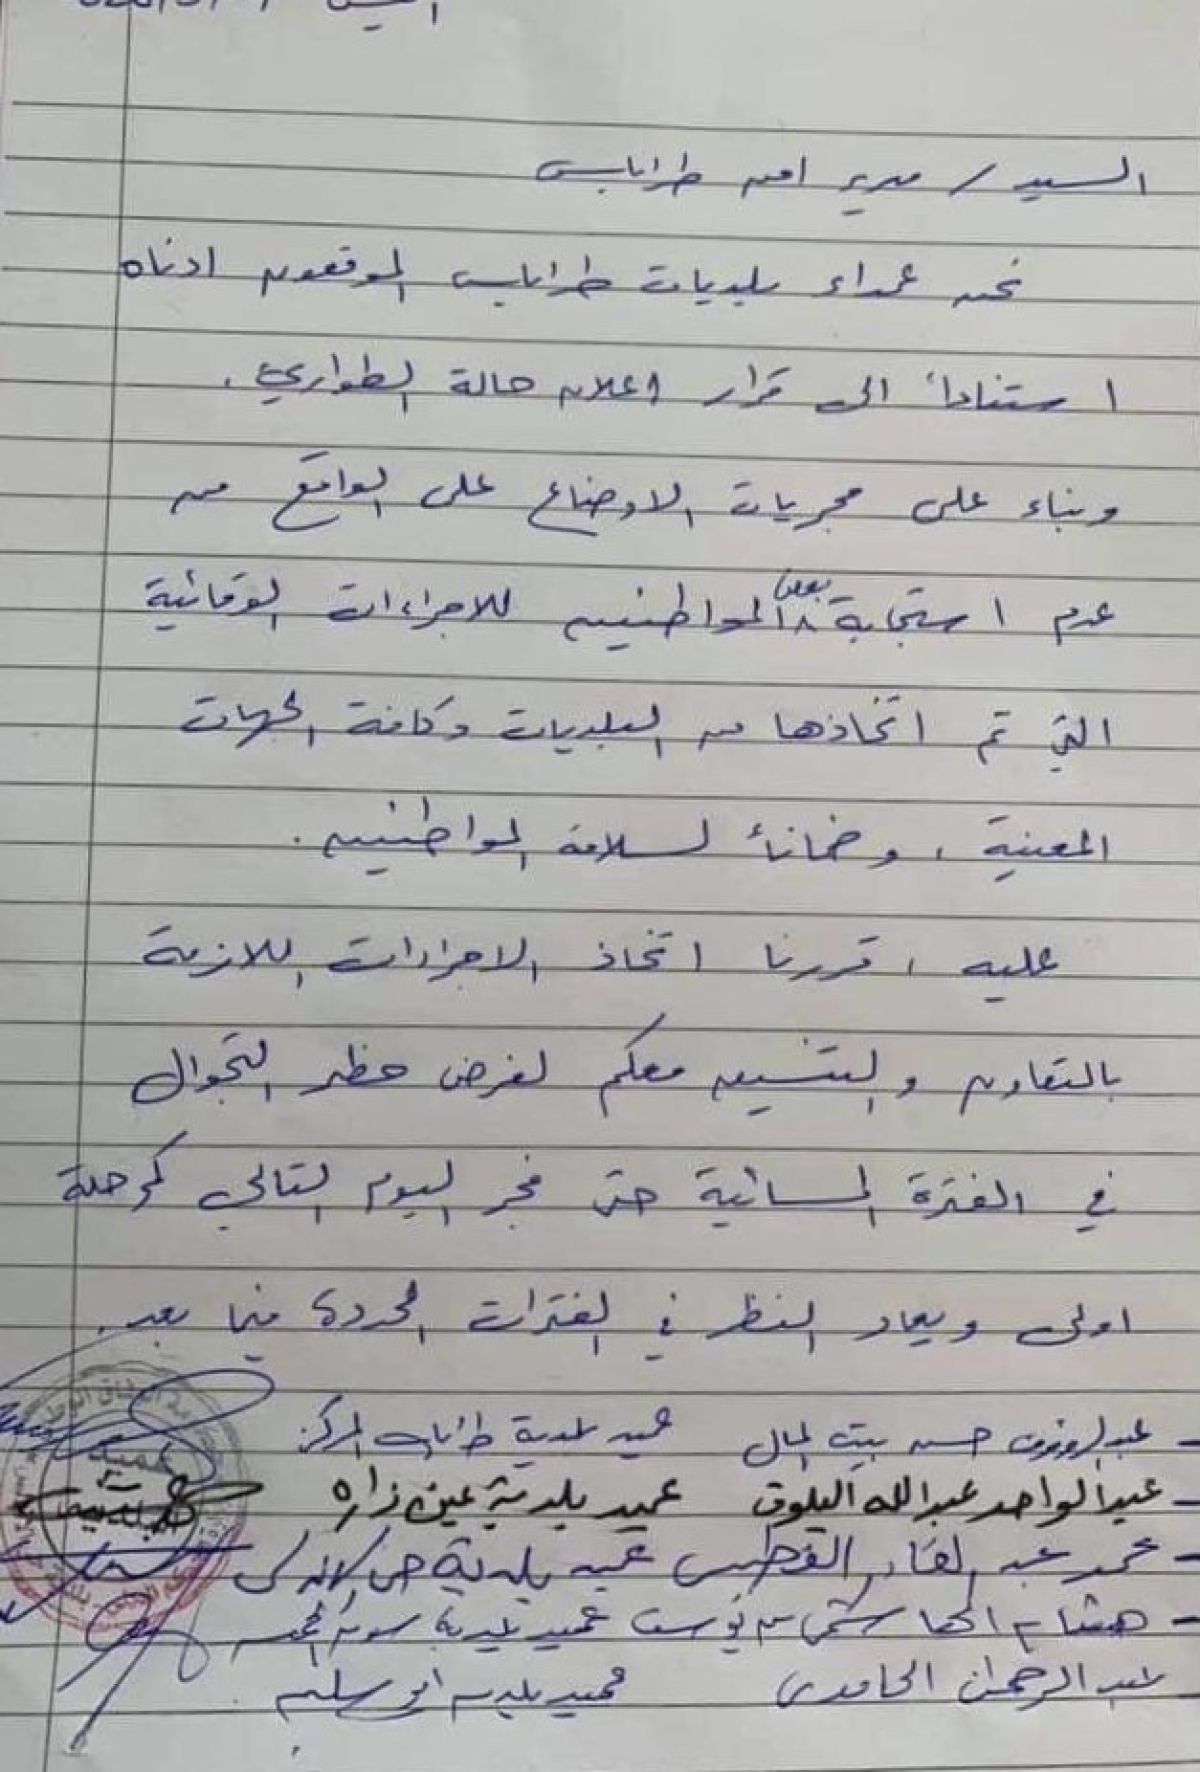 السيد / مدير امن طرابلس
نحن عمداء بلديات طرابلس الموقعون ادناه
استناداً الى قرار اعلان حالة الطوارئ ،
وبناء على مجريات الاوضاع على الواقع من
عدم استجابة بعض المواطنيين للاجراءات الوقائية
التي تم اتخاذها من البلديات وكافة الجهات
المعنية ، وضماناً لسلامة المواطنيين .
عليه ، قررنا اتخاذ الاجراءات اللازمة
بالتعاون والتنسيق معكم لفرض حظر التجوال
في الفترة المسائية حتى فجر اليوم التالي كمرحلة
اولى ويعاد النظر في الفترات المحددة فيما بعد .
- عبدالرؤوف حسن بيت المال عميد بلدية طرابلس المركز
- عبدالواحد عبدالله البلوق عميد بلدية عين زاره
- محمد عبد الفطيسي عميد بلدية حي الاندلس
- هشام بن يوسف عميد بلدية سوق الجمعه
عبد الرحمان الحامدي عميد بلدية ابوسليم
عميد